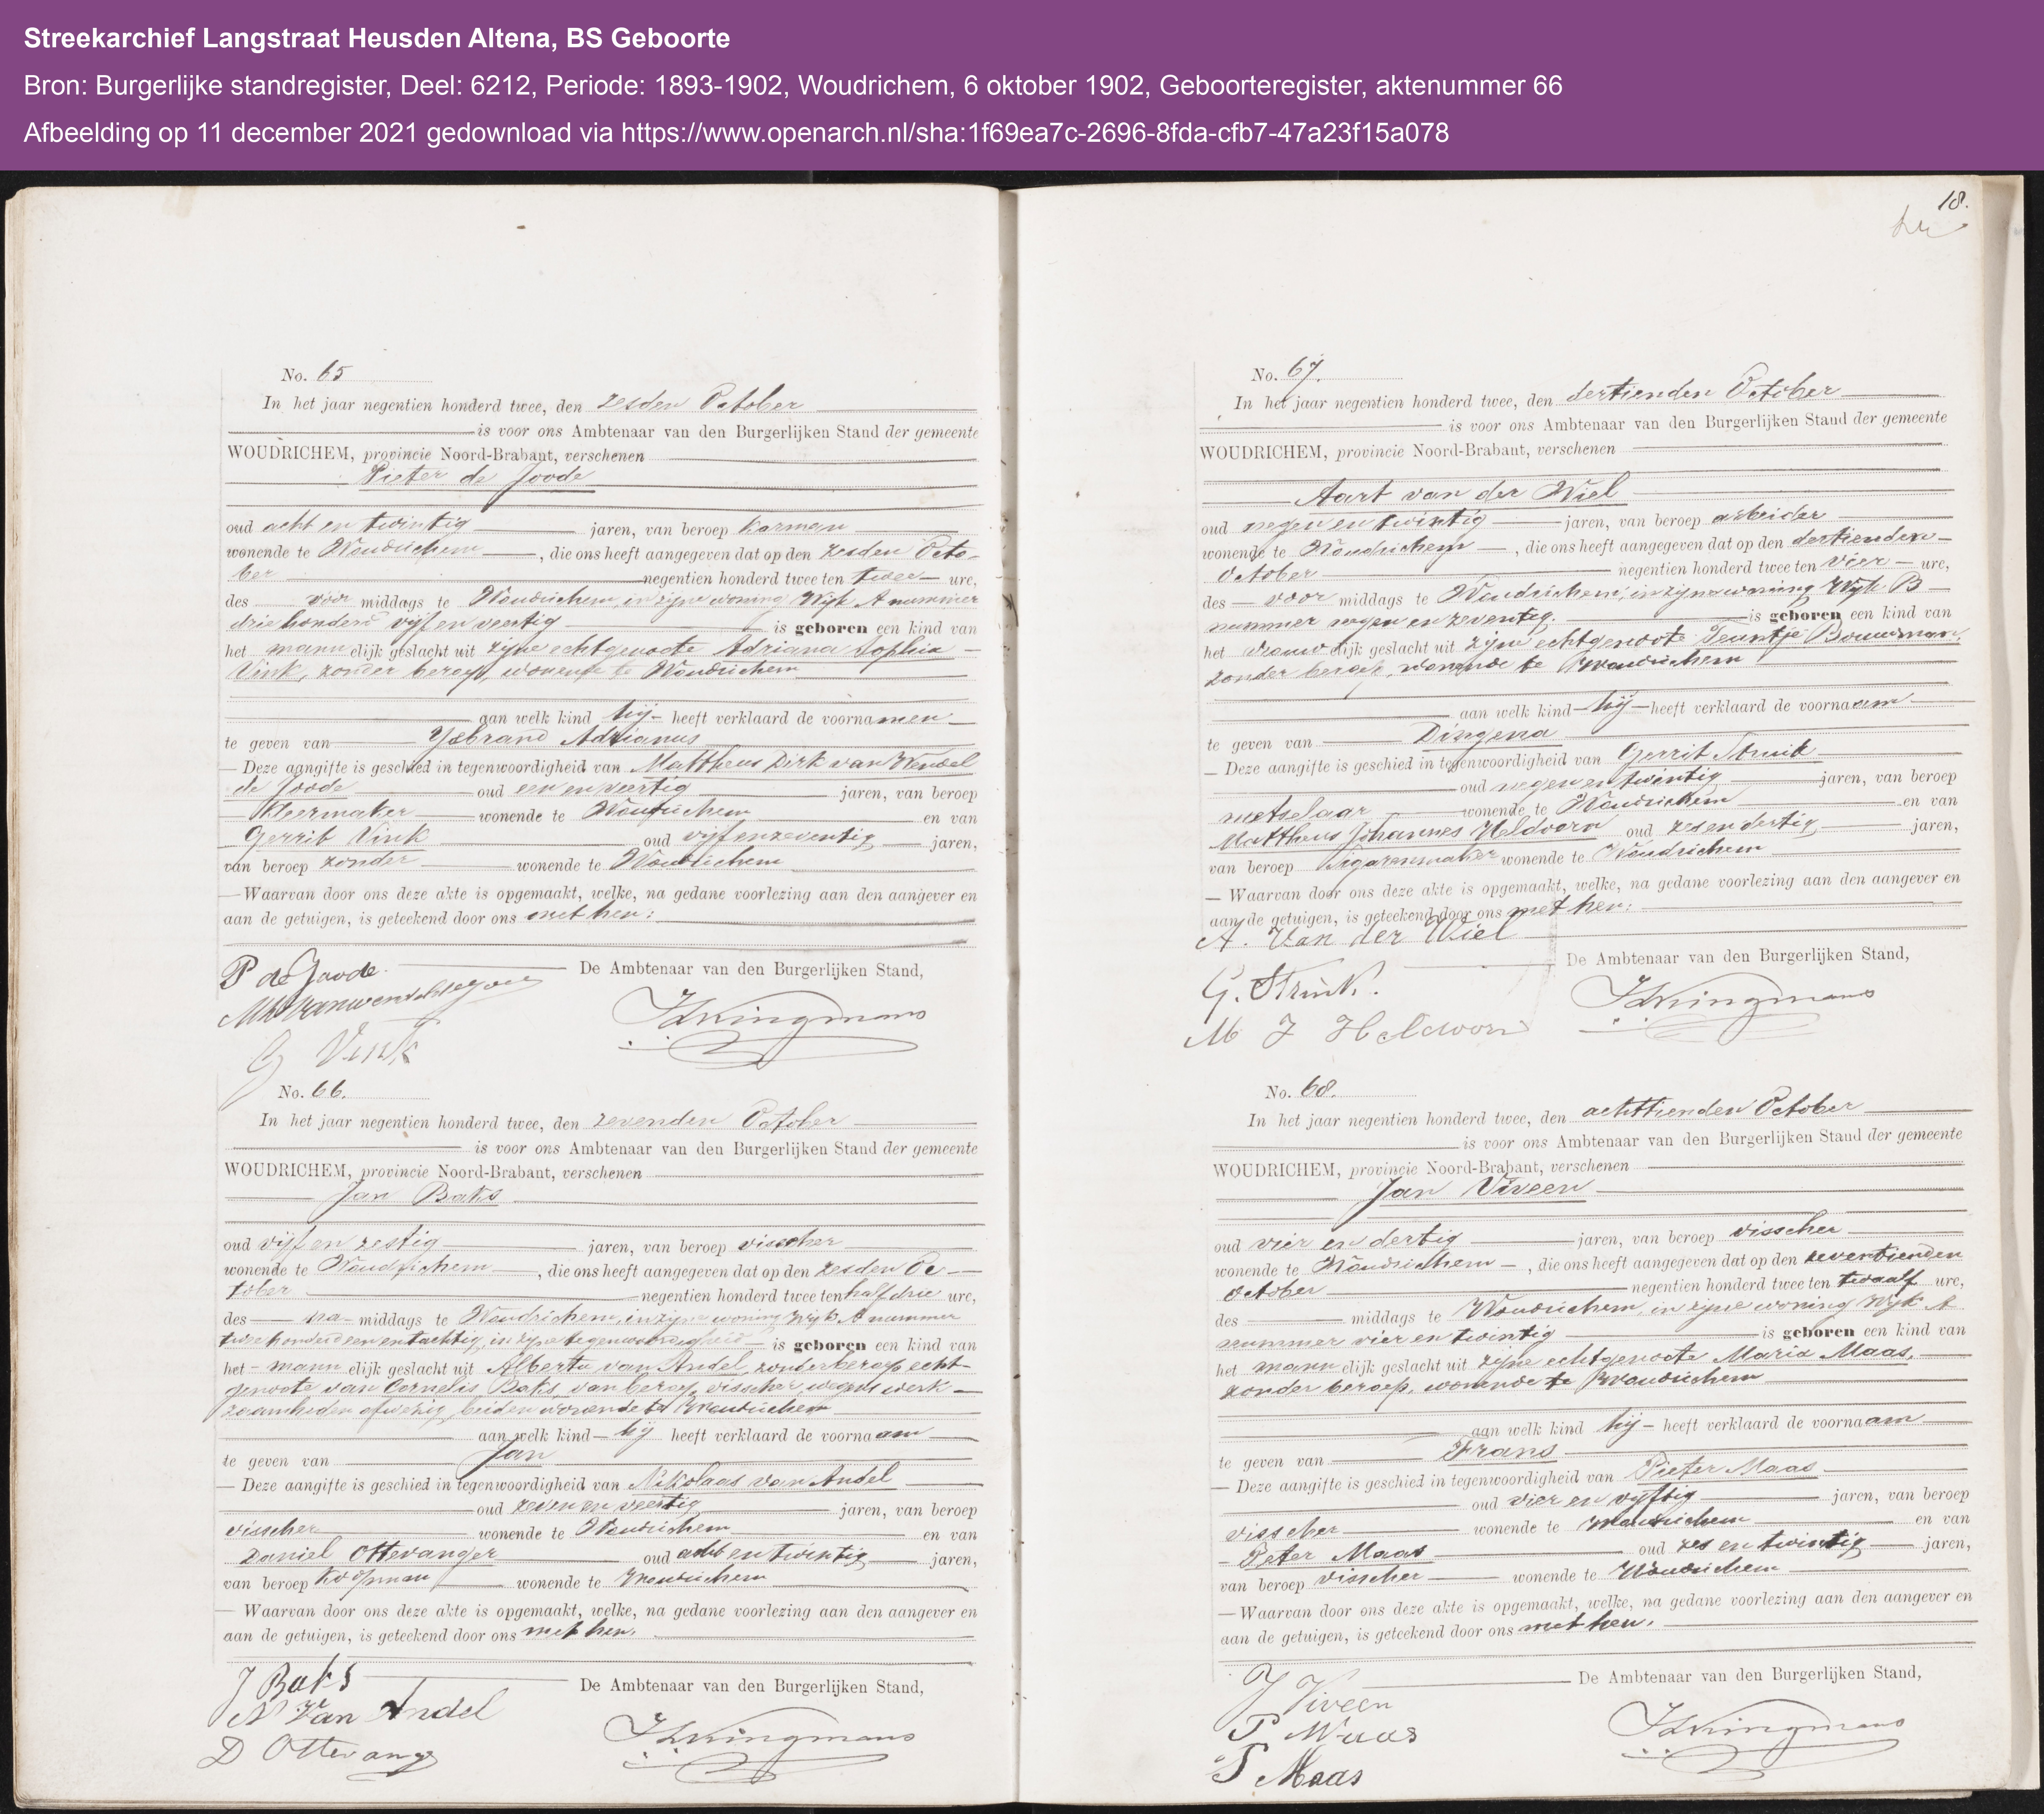 Streekarchief Langstraat Heusden Altena, BS Geboorte
Bron: Burgerlijke standregister, Deel: 6212, Periode: 1893-1902, Woudrichem, 6 oktober 1902, Geboorteregister, aktenummer 66
Afbeelding op 11 december 2021 gedownload via https://www.openarch.nl/sha:1f69ea7c-2696-8fda-cfb7-47a23f15a078
No. 65
In het jaar negentien honderd twee, den zesden October
is voor ons Ambtenaar van den Burgerlijken Stand der gemeente
WOUDRICHEM, provincie Noord-Brabant, verschenen
Pieter de Joode
oud acht en twintig jaren, van beroep korman
wonende te Woudrichem, die ons heeft aangegeven dat op den zesden Octo-
ber negentien honderd twee ten twee ure,
des voor middags te Woudrichem, in zijne woning Wijk A nummer
driehonderd vijf en veertig is geboren een kind van
het mannelijk geslacht uit zijne echtgenoote Adriana Sophia
Vink, zonder beroep, wonende te Woudrichem
aan welk kind hij heeft verklaard de voornamen
te geven van IJsbrand Adrianus
Deze aangifte is geschied in tegenwoordigheid van Mattheus Dirk van Wendel
de Joode oud een en veertig jaren, van beroep
Kleermaker wonende te Woudrichem en van
Gerrit Vink oud vijf en zeventig jaren,
van beroep zonder wonende te Woudrichem
Waarvan door ons deze akte is opgemaakt, welke, na gedane voorlezing aan den aangever en
aan de getuigen, is geteekend door ons met hen:
P de Joode
De Ambtenaar van den Burgerlijken Stand,
G Vink
No. 66.
In het jaar negentien honderd twee, den zevenden October
is voor ons Ambtenaar van den Burgerlijken Stand der gemeente
WOUDRICHEM, provincie Noord-Brabant, verschenen
Jan Baks
oud vijf en zestig jaren, van beroep visscher
wonende te Woudrichem, die ons heeft aangegeven dat op den zesden Oc-
tober negentien honderd twee ten half drie ure,
des na middags te Woudrichem, in zijne woning Wijk A nummer
twee honderd een en tachtig, in zijne tegenwoordigheid is geboren een kind van
het mannelijk geslacht uit Alberta van Andel, zonder beroep echt-
genoote van Cornelis Baks, van beroep visscher, wegens werk-
zaamheden afwezig, beiden wonende te Woudrichem
aan welk kind hij heeft verklaard de voornaam
te geven van Jan
Deze aangifte is geschied in tegenwoordigheid van Nikolaas van Andel
oud zeven en veertig jaren, van beroep
visscher wonende te Woudrichem en van
Daniel Ottevanger oud acht en twintig jaren,
van beroep Koopman wonende te Woudrichem
Waarvan door ons deze akte is opgemaakt, welke, na gedane voorlezing aan den aangever en
aan de getuigen, is geteekend door ons met hen.
J Baks
De Ambtenaar van den Burgerlijken Stand,
N Van Andel
D Ottevanger
18.
No. 67.
In het jaar negentien honderd twee, den dertienden October
is voor ons Ambtenaar van den Burgerlijken Stand der gemeente
WOUDRICHEM, provincie Noord-Brabant, verschenen
Aart van der Wiel
oud negen en twintig jaren, van beroep arbeider
wonende te Woudrichem, die ons heeft aangegeven dat op den dertienden
October negentien honderd twee ten vier ure,
des voor middags te Woudrichem, in zijne woning Wijk B
nummer negen en zeventig is geboren een kind van
het vrouwelijk geslacht uit zijne echtgenoote Teuntje Bouwman,
zonder beroep, wonende te Woudrichem
aan welk kind hij heeft verklaard de voornaam
te geven van Dingena
Deze aangifte is geschied in tegenwoordigheid van Gerrit Struik
oud negen en twintig jaren, van beroep
metselaar wonende te Woudrichem en van
Mattheus Johannes Heldoorn oud zes en dertig jaren,
van beroep sigarenmaker wonende te Woudrichem
Waarvan door ons deze akte is opgemaakt, welke, na gedane voorlezing aan den aangever en
aan de getuigen, is geteekend door ons met hen:
A. Van der Wiel
De Ambtenaar van den Burgerlijken Stand,
G. Struik.
M J Heldoorn
No. 68.
In het jaar negentien honderd twee, den achttienden October
is voor ons Ambtenaar van den Burgerlijken Stand der gemeente
WOUDRICHEM, provincie Noord-Brabant, verschenen
Jan Viveen
oud vier en dertig jaren, van beroep visscher
wonende te Woudrichem, die ons heeft aangegeven dat op den zeventienden
October negentien honderd twee ten twaalf ure,
des middags te Woudrichem, in zijne woning Wijk A
nummer vier en twintig is geboren een kind van
het mannelijk geslacht uit zijne echtgenoote Maria Maas,
zonder beroep, wonende te Woudrichem
aan welk kind hij heeft verklaard de voornaam
te geven van Frans
Deze aangifte is geschied in tegenwoordigheid van Pieter Maas
oud vier en vijftig jaren, van beroep
visscher wonende te Woudrichem en van
Peter Maas oud zes en twintig jaren,
van beroep visscher wonende te Woudrichem
Waarvan door ons deze akte is opgemaakt, welke, na gedane voorlezing aan den aangever en
aan de getuigen, is geteekend door ons met hen.
De Ambtenaar van den Burgerlijken Stand,
J Viveen
P Maas
P Maas